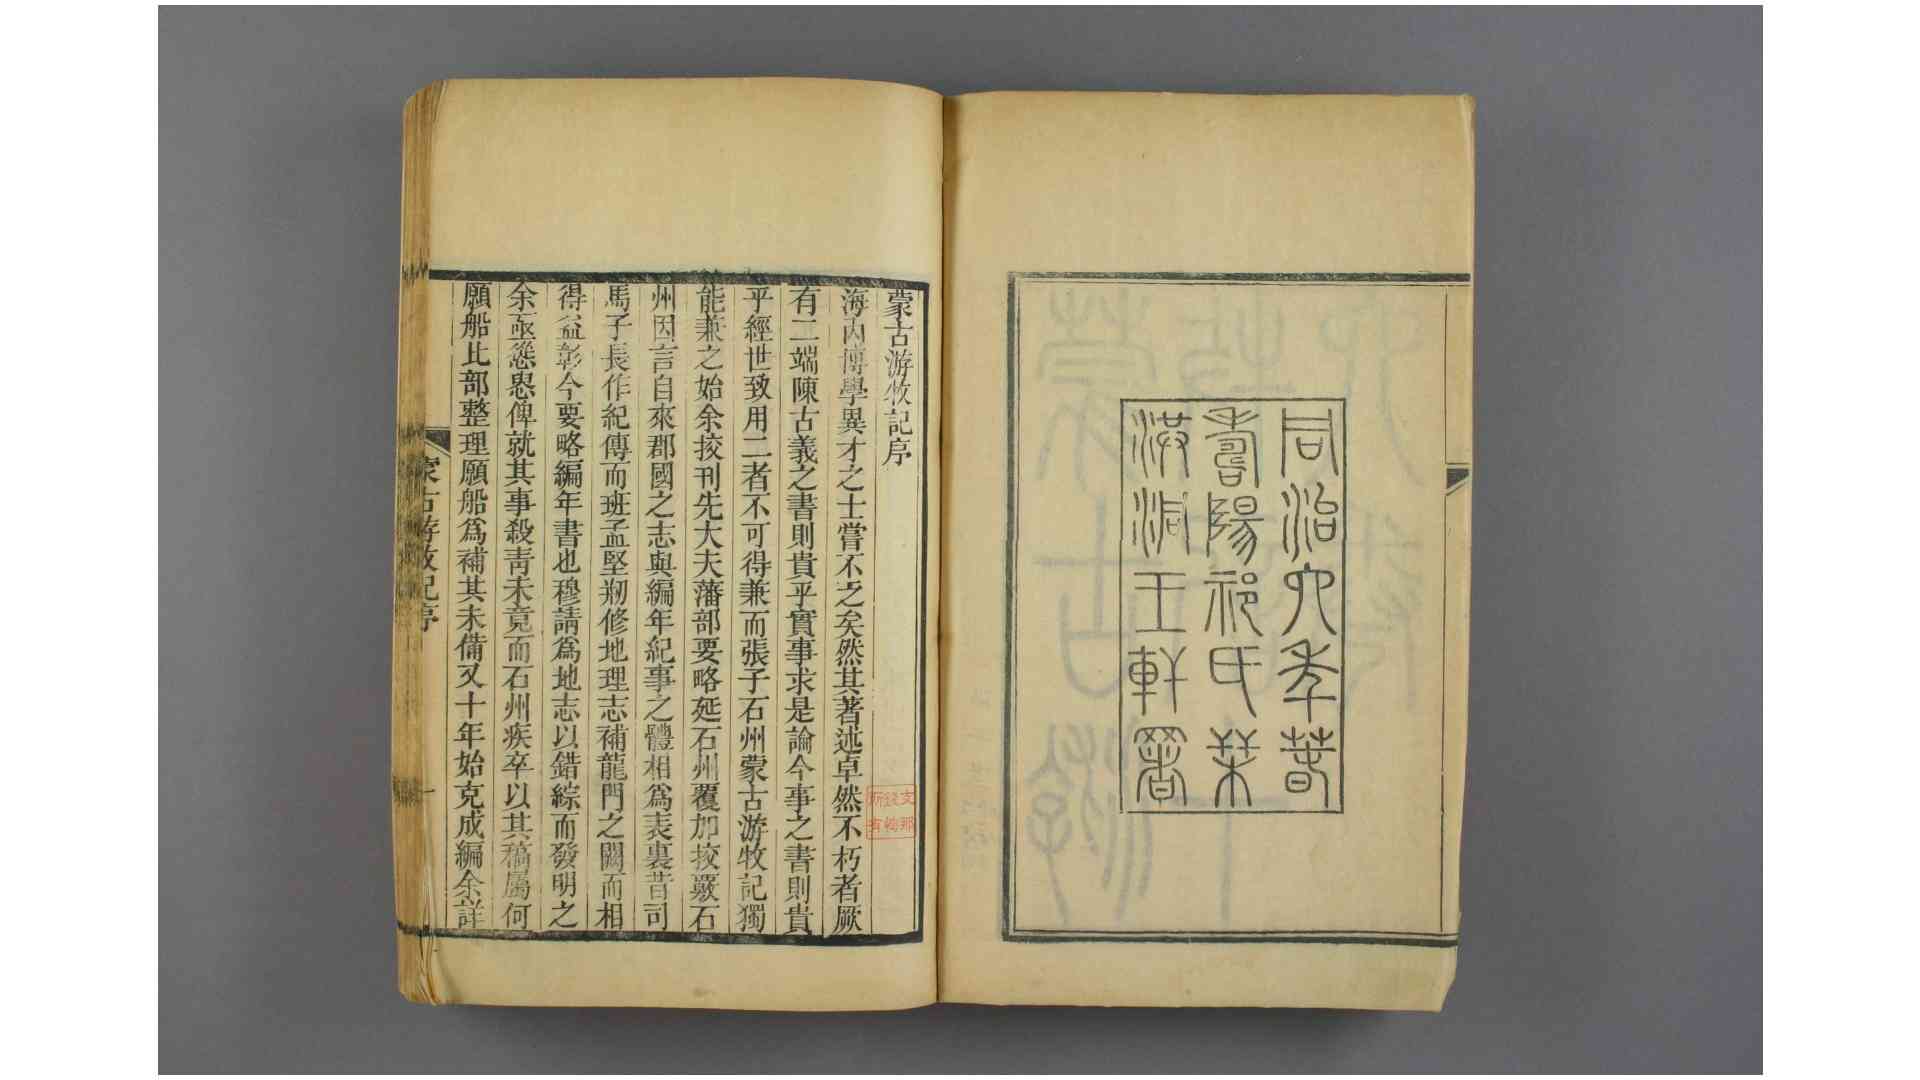 同治六年春
壽陽祁氏栞
洪洞王軒署
蒙古游牧記序
海内博學異才之士嘗不乏矣然其著述卓然不朽者厥
有二端陳古義之書則貴乎實事求是論今事之書則貴
乎經世致用二者不可得兼而張子石州蒙古游牧記獨
能兼之始余挍刊先大夫藩部要略延石州覆加挍覈石
州因言自來郡國之志與編年紀事之體相爲表裏昔司
馬子長作紀傳而班孟堅剏修地理志補龍門之闕而相
得益彰今要略編年書也穆請爲地志以錯綜而發明之
余亟慫恿俾就其事殺青未竟而石州疾卒以其稿屬何
願船比部整理願船爲補其未備又十年始克成編余詳
蒙古游牧記序
一